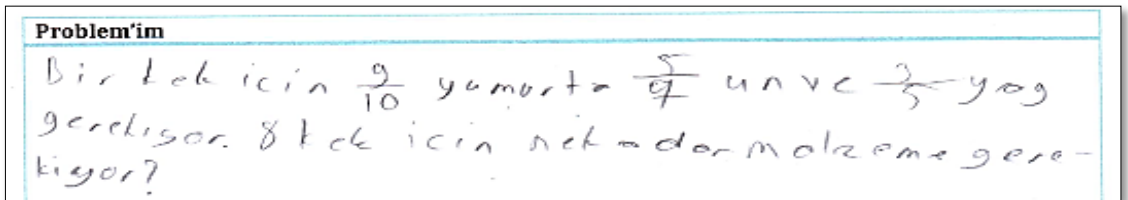 Problem'im
Bir kek icin 9/10 yumurta 5/9 un ve 3/5 yag
gerekiyor. 8 kek icin nekadar malzeme gere-
kiyor?